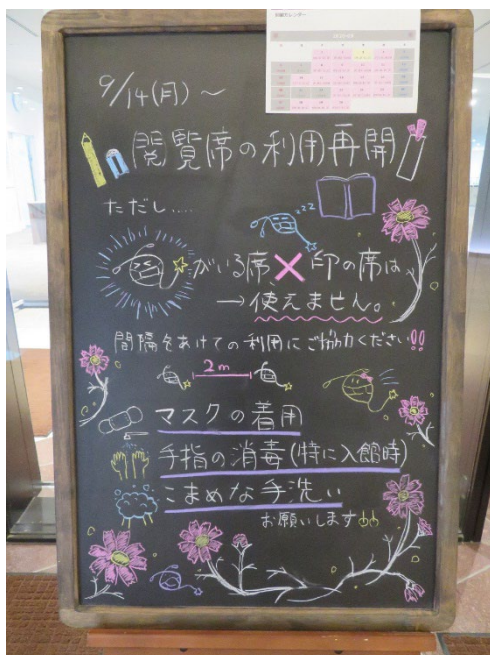 9/14(月)～
閲覧席の利用再開
ただし.....
zzz
がいる席×印の席は
→使えません。
間隔をあけての利用にご協力ください!!
2m
マスクの着用
手指の消毒(特に入館時)
こまめな手洗い
お願いします